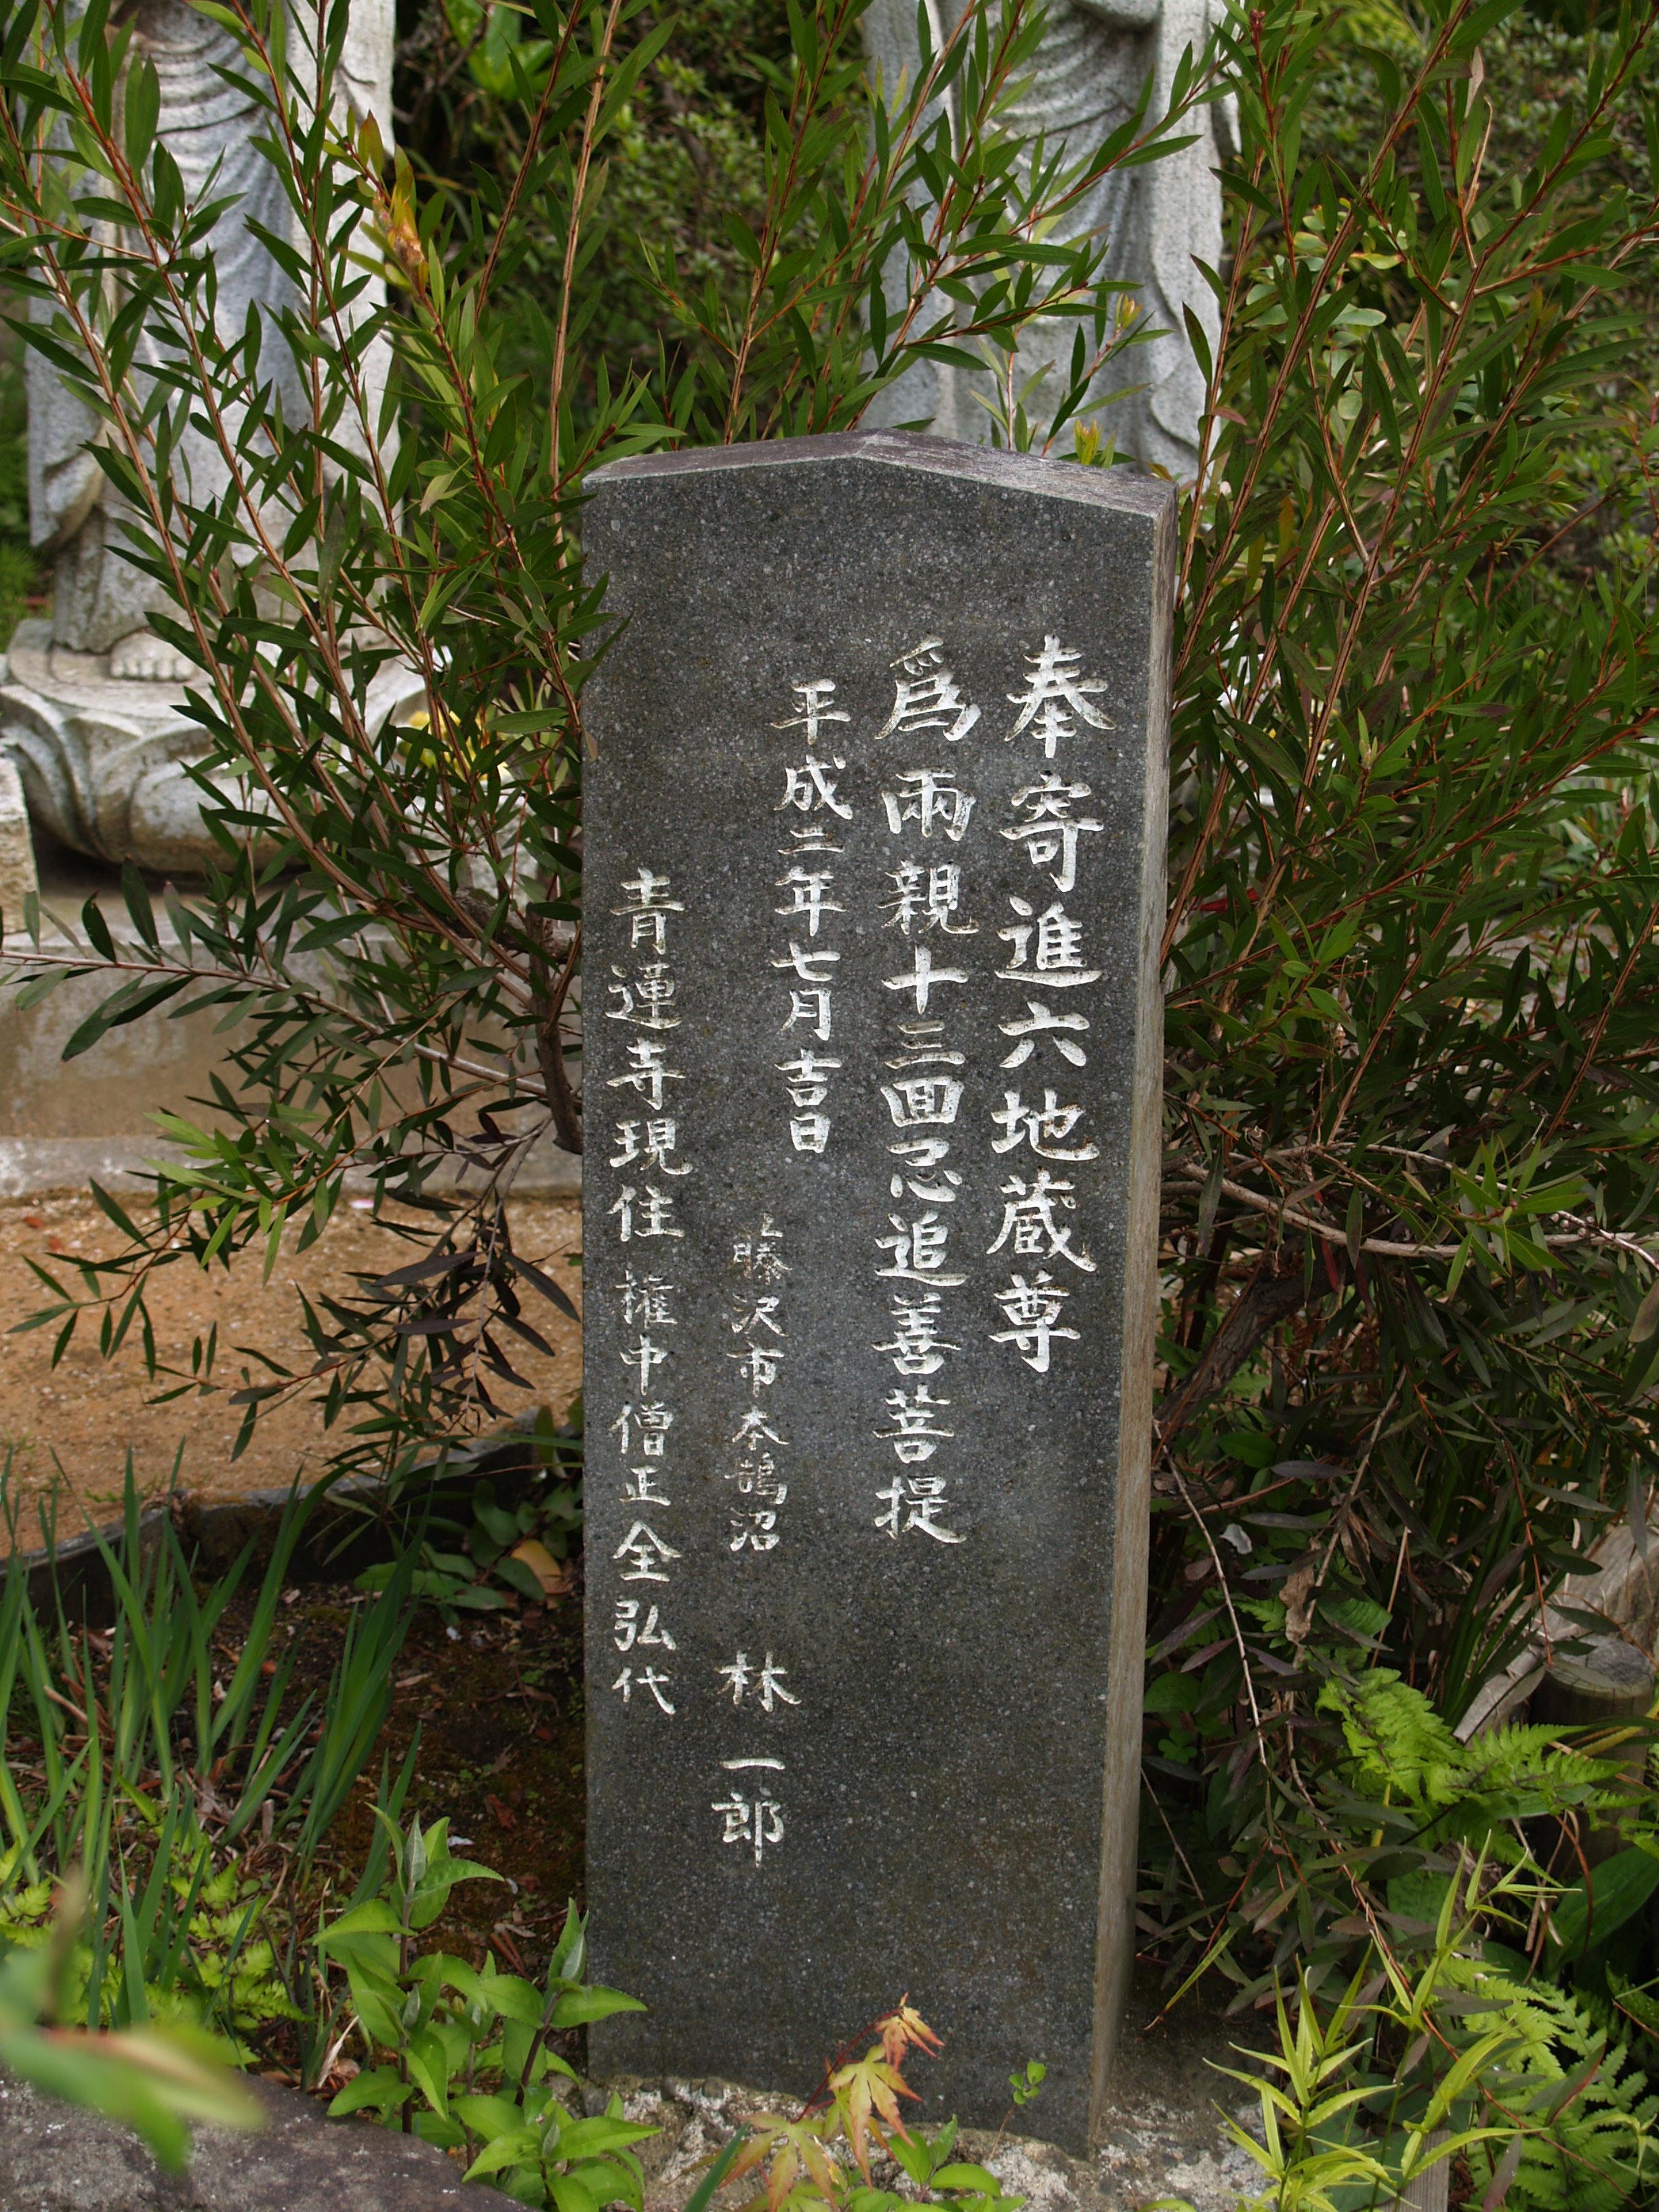 奉寄進六地蔵尊
爲兩親十三回忌追善菩提
平成二年七月吉日
藤沢市本鵠沼 林一郎
青蓮寺現住 権中僧正全弘代